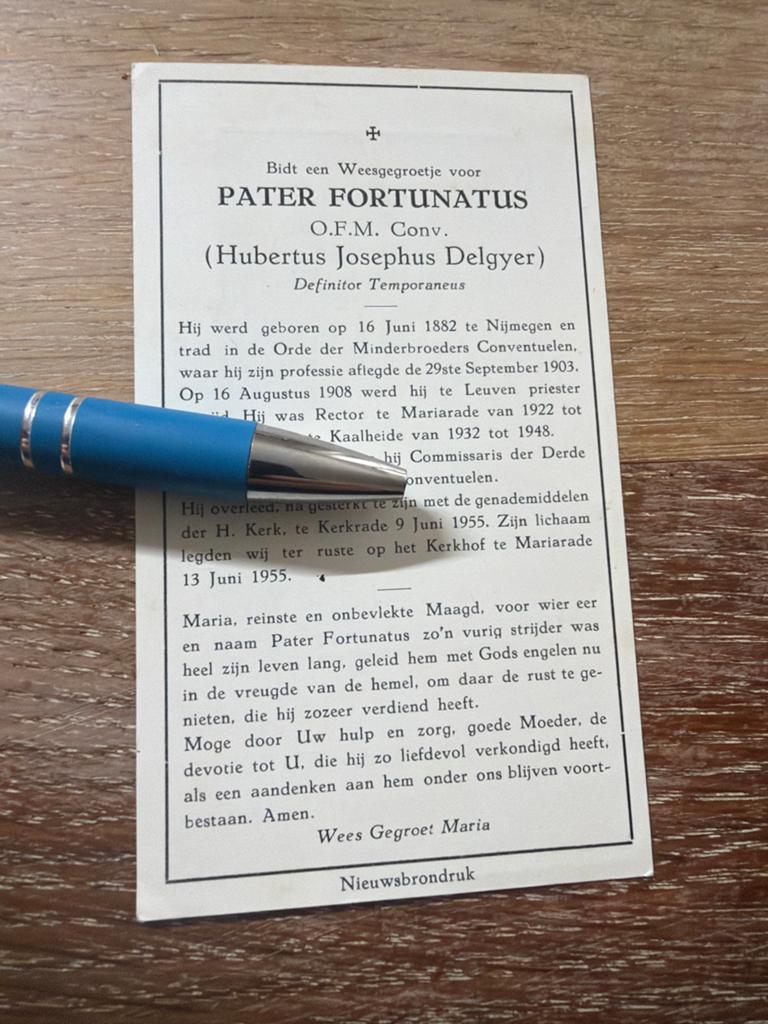 Bidt een Weesgegroetje voor
PATER FORTUNATUS
O.F.M. Conv.
(Hubertus Josephus Delgyer)
Definitor Temporaneus
Hij werd geboren op 16 Juni 1882 te Nijmegen en
trad in de Orde der Minderbroeders Conventuelen,
waar hij zijn professie aflegde de 29ste September 1903.
Op 16 Augustus 1908 werd hij te Leuven priester
Hij was Rector te Mariarade van 1922 tot
Kaalheide van 1932 tot 1948.
hij Commissaris der Derde
Hij overleed, na gesterkt te zijn met de genademiddelen
der H. Kerk, te Kerkrade 9 Juni 1955. Zijn lichaam
legden wij ter ruste op het Kerkhof te Mariarade
13 Juni 1955.
Maria, reinste en onbevlekte Maagd, voor wier eer
en naam Pater Fortunatus zo'n vurig strijder was
heel zijn leven lang, geleid hem met Gods engelen nu
in de vreugde van de hemel, om daar de rust te ge-
nieten, die hij zozeer verdiend heeft.
Moge door Uw hulp en zorg, goede Moeder, de
devotie tot U, die hij zo liefdevol verkondigd heeft,
als een aandenken aan hem onder ons blijven voort-
bestaan. Amen.
Wees Gegroet Maria
Nieuwsbrondruk